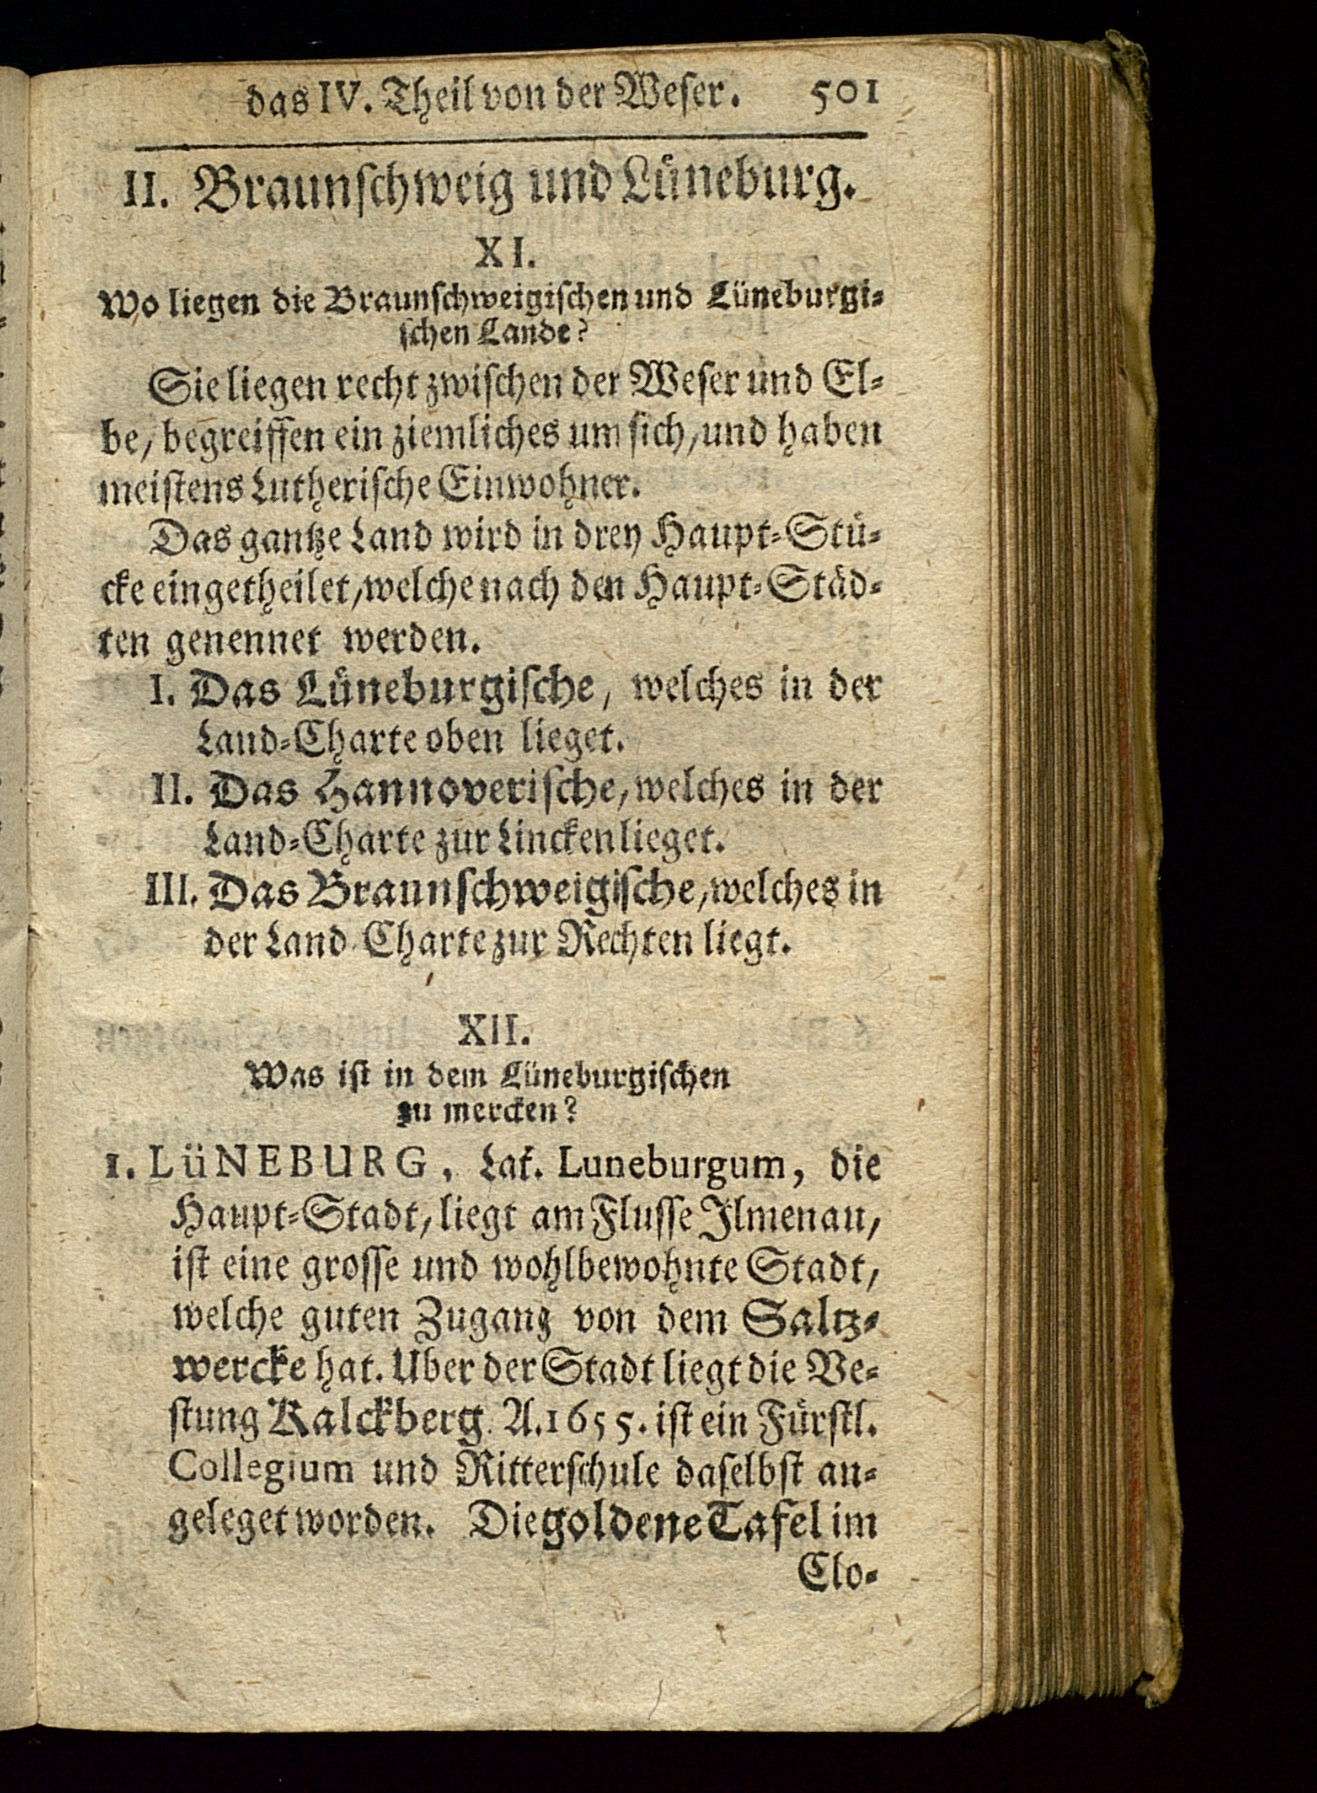 das IV. Theil von der Weser. 501
II. Braunschweig und Lüneburg.
XI.
Wo liegen die Braunschweigischen und Lüneburgi-
schen Lande?
Sie liegen recht zwischen der Weser und El-
be, begreiffen ein ziemliches um sich, und haben
meistens Lutherische Einwohner.
Das gantze Land wird in drey Haupt-Stü-
cke eingetheilet, welche nach den Haupt-Städ-
ten genennet werden.
I. Das Lüneburgische, welches in der
Land-Charte oben lieget.
II. Das Hannoverische, welches in der
Land-Charte zur Lincken lieget.
III. Das Braunschweigische, welches in
der Land-Charte zur Rechten liegt.
XII.
Was ist in dem Lüneburgischen
zu mercken?
1. LüNEBURG, Lat. Luneburgum, die
Haupt-Stadt, liegt am Flusse Ilmenau,
ist eine grosse und wohlbewohnte Stadt,
welche guten Zugang von dem Saltz-
wercke hat. Uber der Stadt liegt die Ve-
stung Kalckberg. A. 1655. ist ein Fürstl.
Collegium und Ritterschule daselbst an-
geleget worden. Die goldene Tafel im
Clo-